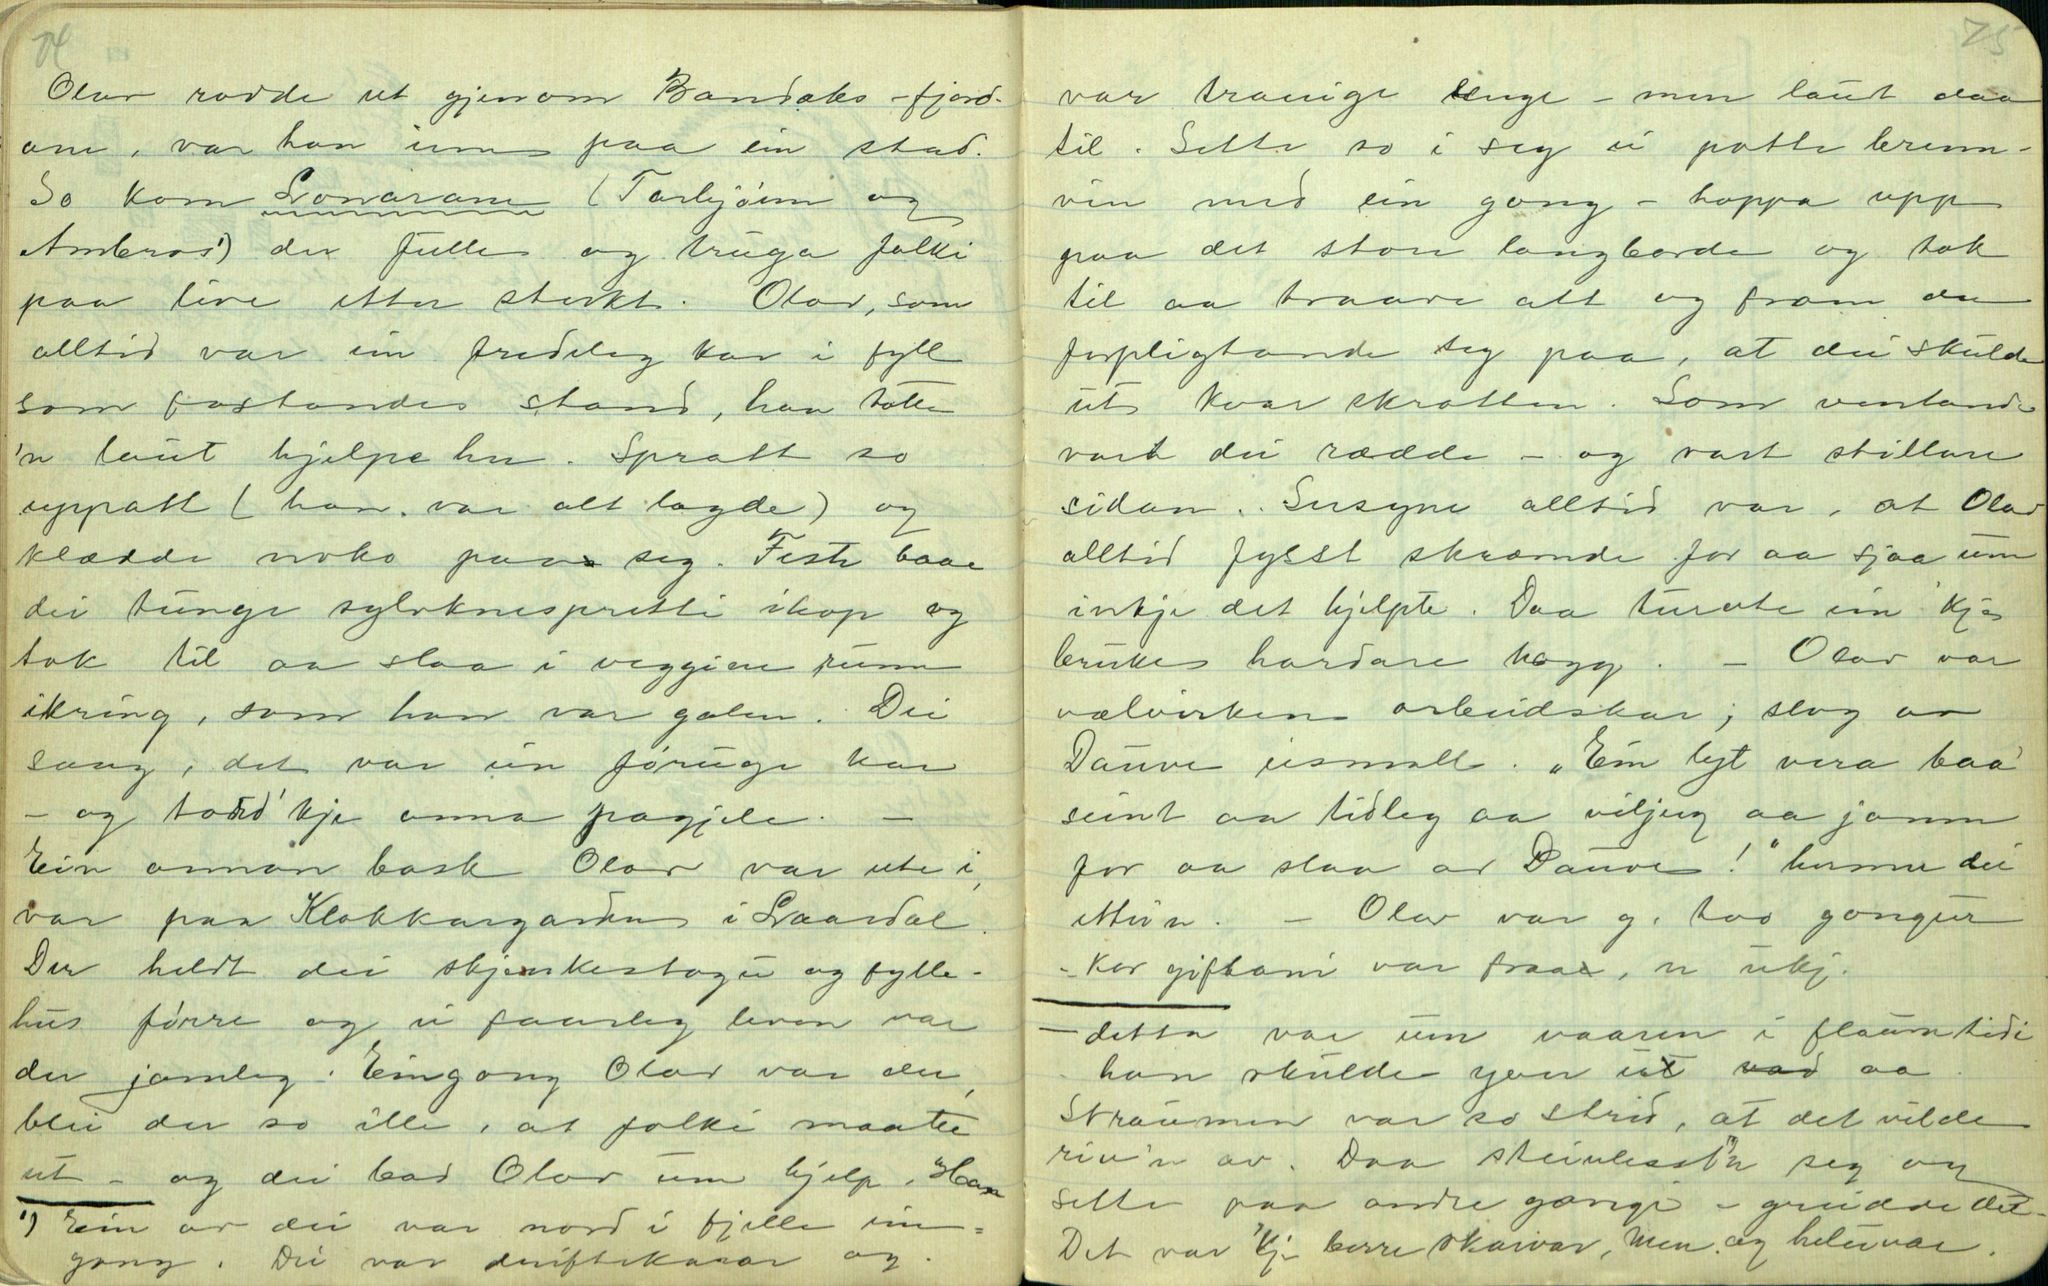 74
Olav rodde ut gjenom Bandaks-fjord-
ane, var han inne paa ein stad.
So kom Lonarane (Torbjönn og
Ambros¹) der fulle og truga folki
paa live etter sterkt. Olav, som
alltid var ein fredeleg kar i fyll
som fastande stand, han totte
'n laut hjelpe hu. Spratt so
uppatt (han var alt lagde) og
klædde noko paa seg. Feste baae
dei tunge sylvknespretti ihop og
tok til aa slaa i veggiene runn
ikring, som han var galen. Dei
saag, det var ein föruge kar
- og tord' kje anna fagjele. -
Ein annan bask Olav var ute i,
var paa Klokkargarden i Laardal.
Der heldt dei skjenkestogu og fylle-
hus förre og ei faarleg leven var
der jamleg. Eingong Olav var der,
blei der so ille, at folki maatte
ut - og dei bad Olav um hjelp. Han
¹) Ein av dei var nord i fjelle ein-
gong. Dei var driftekarar og
75
var trauige lenge - men laut daa
til. Sette so i seg ei potte brenn-
vin med ein gong - hoppa upp
paa det store langborde og tok
til aa traave att og fram der
forpligtande seg paa, at dei skulde
ut kvar skrotten. Som ventande
vart dei rædde - og vart stillare
sidan. Susyne alltid var, at Olav
alltid fysst skræmde for aa sjaa um
inkje det hjelpte. Daa turvte ein 'kje
bruke hardare hogg. - Olav var
velvirken arbeidskar; slog av
Dauve eismall. "Ein lyt vera baa'
seint aa tidleg aa viljug aa jamn
for aa slaa av Dauve!" herme dei
etter'n. - Olav var g. too gongur
- kor giftami var fraa, er ukj.
- detta var um vaaren i flaumtidi
han skulde yver ut aa
straumen var so strid, at det vilde
riv'n av. Daa steinlesst'n seg og
sette paa andre gongi - greidde det.
Det var 'kje berre skarvar, men og heteivar.